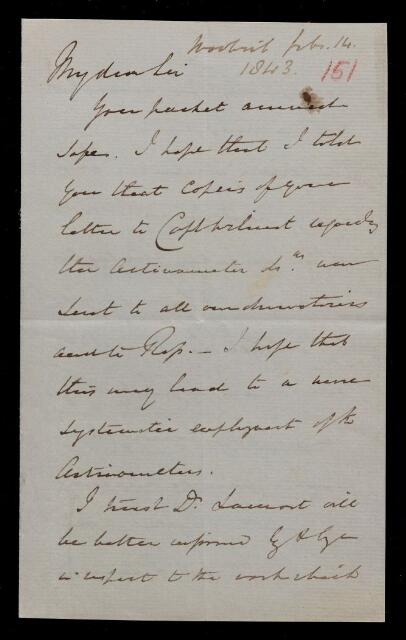 Woolwich Feb. 14.
1843. 151
My dear Sir
Your packet arrived
safe. I hope that I told
you that copies of your
letter to Capt Wilmot regarding
the Actinometer &c. were
sent to all our observatories
and to Ross. — I hope that
this may lead to a more
systematic employment of the
Actinometers.
I trust Dr. Lamont will
be better informed
in respect to the work which